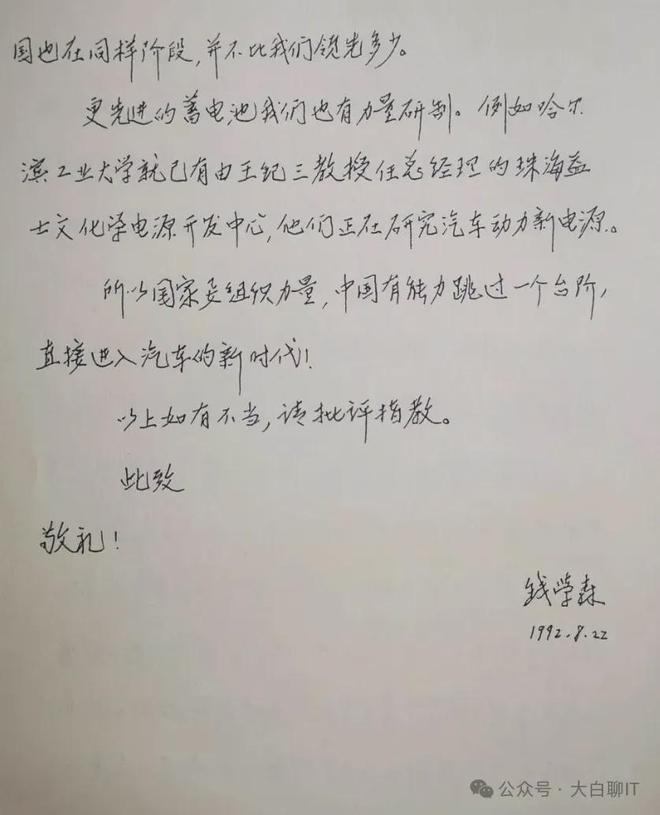 国也在同样阶段，并不比我们领先多少。
更先进的蓄电池我们也有力量研制。例如哈尔
滨工业大学就已有由王纪三教授任总经理的珠海益
士文化学电源开发中心，他们正在研究汽车动力新电源。
所以国家要组织力量，中国有能力跳过一个台阶，
直接进入汽车的新时代！
以上如有不当，请批评指教。
此致
敬礼！
钱学森
1992.8.22
公众号·大白聊IT